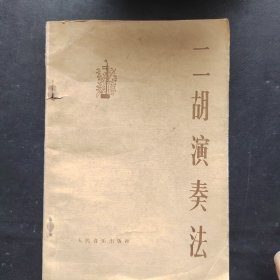 二胡演奏法
人民音乐出版社